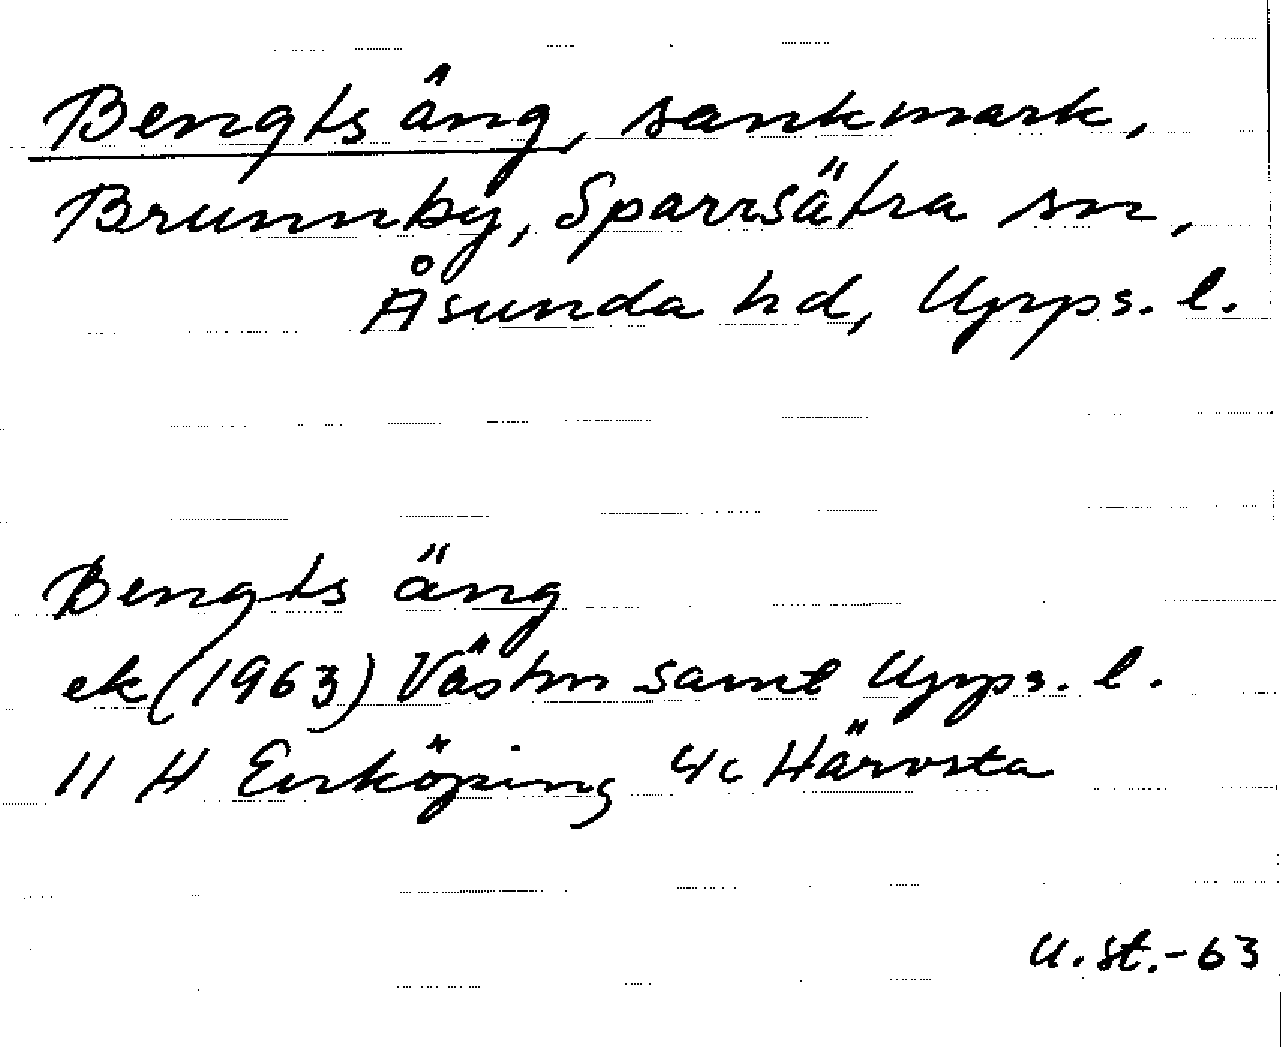 Bengts äng, sankmark,
Brunnby, Sparrsätra sn,
Åsunda hd, Upps. l.
Bengts äng
ek (1963) Västm samt Upps. l.
11 H Enköping 4c Härvsta
U. St. - 63